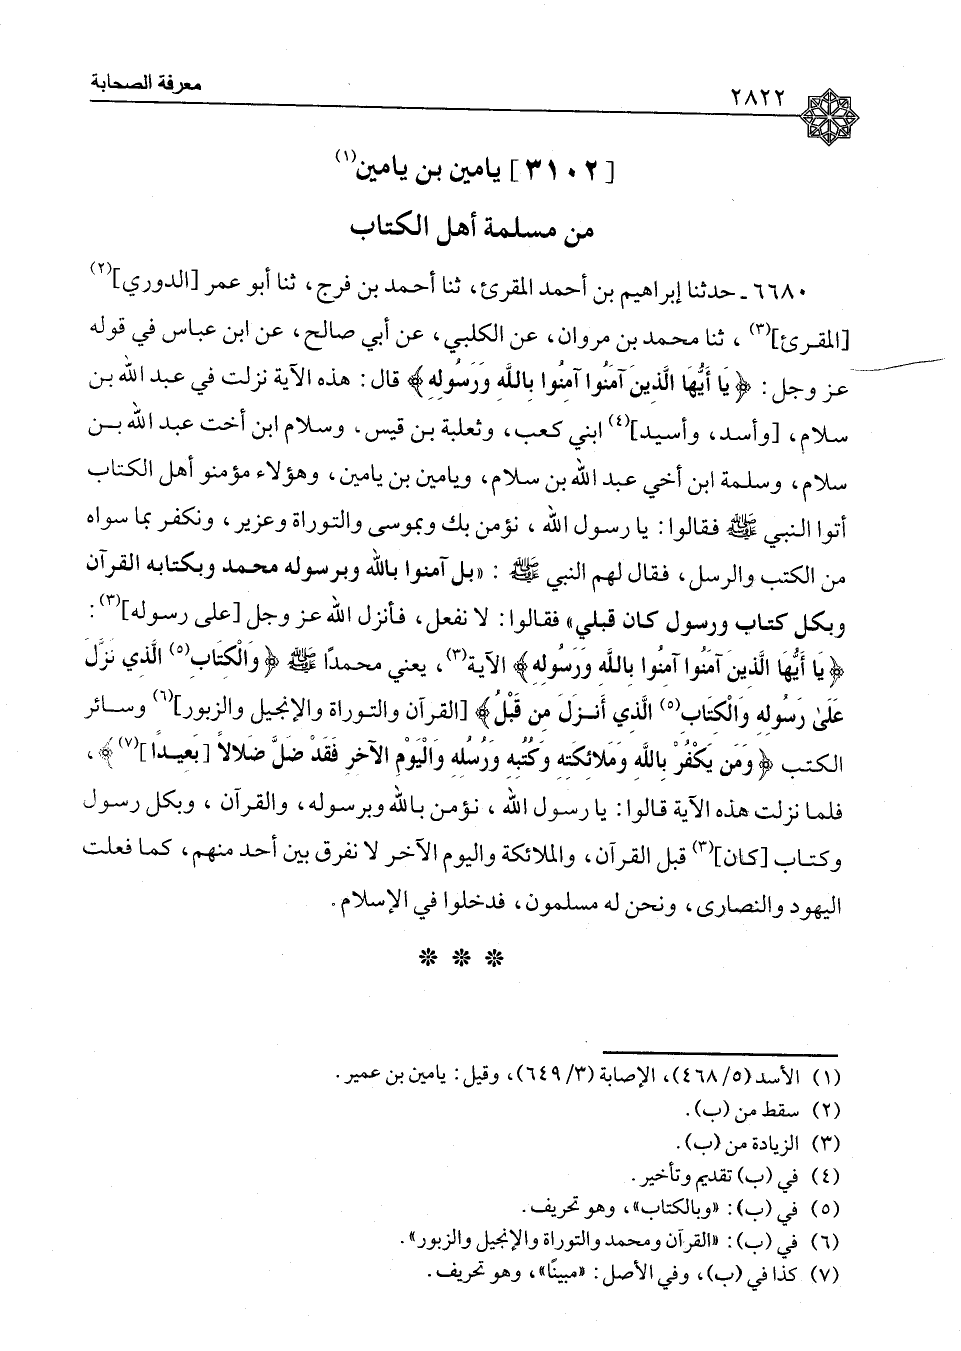 معرفة الصحابة
٢٨٢٢
[٣١٠٢] يامين بن يامين(١)
من مسلمة أهل الكتاب
٦٦٨٠ـ حدثنا إبراهيم بن أحمد المقرئ، ثنا أحمد بن فرج، ثنا أبو عمر [الدوري](٢)
[المقرئ](٣)، ثنا محمد بن مروان، عن الكلبي، عن أبي صالح، عن ابن عباس في قوله
عز وجل: ﴿يَا أَيُّهَا الَّذِينَ آمَنُوا آمِنُوا بِاللَّهِ وَرَسُولِهِ﴾ قال: هذه الآية نزلت في عبد الله بن
سلام، [وأسد، وأسيد](٤) ابني كعب، وثعلبة بن قيس. وسلام ابن أخت عبد الله بن
سلام، وسلمة ابن أخي عبد الله بن سلام، ويامين بن يامين، وهؤلاء مؤمنو أهل الكتاب
أتوا النبي ﷺ فقالوا: يا رسول الله، نؤمن بك وبموسى والتوراة وعزير، ونكفر بما سواه
من الكتب والرسل، فقال لهم النبي ﷺ: «بل آمنوا بالله وبرسوله محمد وبكتابه القرآن
وبكل كتاب ورسول كان قبلي» فقالوا: لا نفعل، فأنزل الله عز وجل [على رسوله](٣):
﴿يَا أَيُّهَا الَّذِينَ آمَنُوا آمِنُوا بِاللَّهِ وَرَسُولِهِ﴾ الآية(٣)، يعني محمدًا ﷺ ﴿وَالْكِتَابِ(٥) الَّذِي نَزَّلَ
عَلَىٰ رَسُولِهِ وَالْكِتَابِ(٥) الَّذِي أَنزَلَ مِن قَبْلُ﴾ [القرآن والتوراة والإنجيل والزبور](٦) وسائر
الكتب ﴿وَمَن يَكْفُرْ بِاللَّهِ وَمَلائِكَتِهِ وَكُتُبِهِ وَرُسُلِهِ وَالْيَوْمِ الآخِرِ فَقَدْ ضَلَّ ضَلالاً [بَعِيدًا](٧)﴾،
فلما نزلت هذه الآية قالوا: يا رسول الله، نؤمن بالله وبرسوله، والقرآن، وبكل رسول
وكتاب [كان](٣) قبل القرآن، والملائكة واليوم الآخر لا نفرق بين أحد منهم، كما فعلت
اليهود والنصارى، ونحن له مسلمون، فدخلوا في الإسلام.
(١) الأسد (٥/ ٤٦٨)، الإصابة (٣/ ٦٤٩)، وقيل: يامين بن عمير.
(٢) سقط من (ب).
(٣) الزيادة من (ب).
(٤) في (ب) تقديم وتأخير.
(٥) في (ب): «وبالكتاب»، وهو تحريف.
(٦) في (ب): «القرآن ومحمد والتوراة والإنجيل والزبور».
(٧) كذا في (ب)، وفي الأصل: «مبينًا»، وهو تحريف.